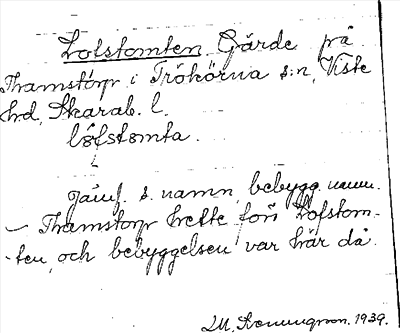 Lofstomten Gärde på
Thamstorp i Trökörna s:n, Viste
hd, Skarab. l.
löfstomta.
Jämf. s. namn, bebygg. namn.
– Thamstorp hette förr Lofstom-
-ten, och bebyggelsen var här då.
1939.